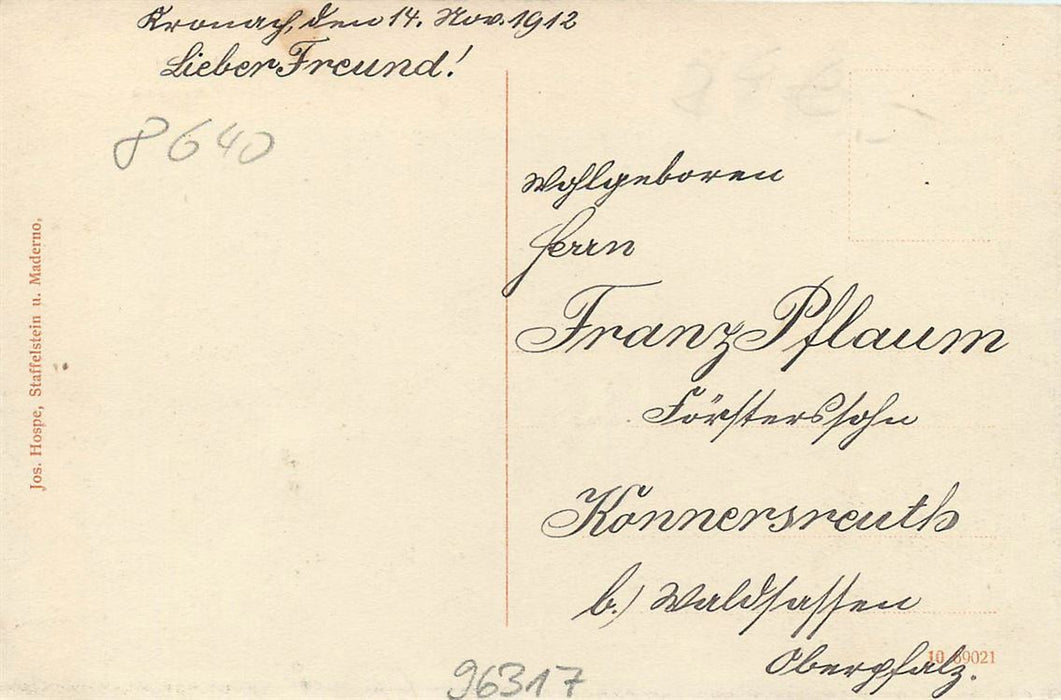 Kronach, den 14. Nov. 1912
Lieber Freund!
8640
Jos. Hospe, Staffelstein u. Maderno,
Wohlgeboren
Herrn
Franz Pflaum
Försterssohn
Konnersreuth
b./ Waldsassen
Oberpfalz.
10 69021
96317